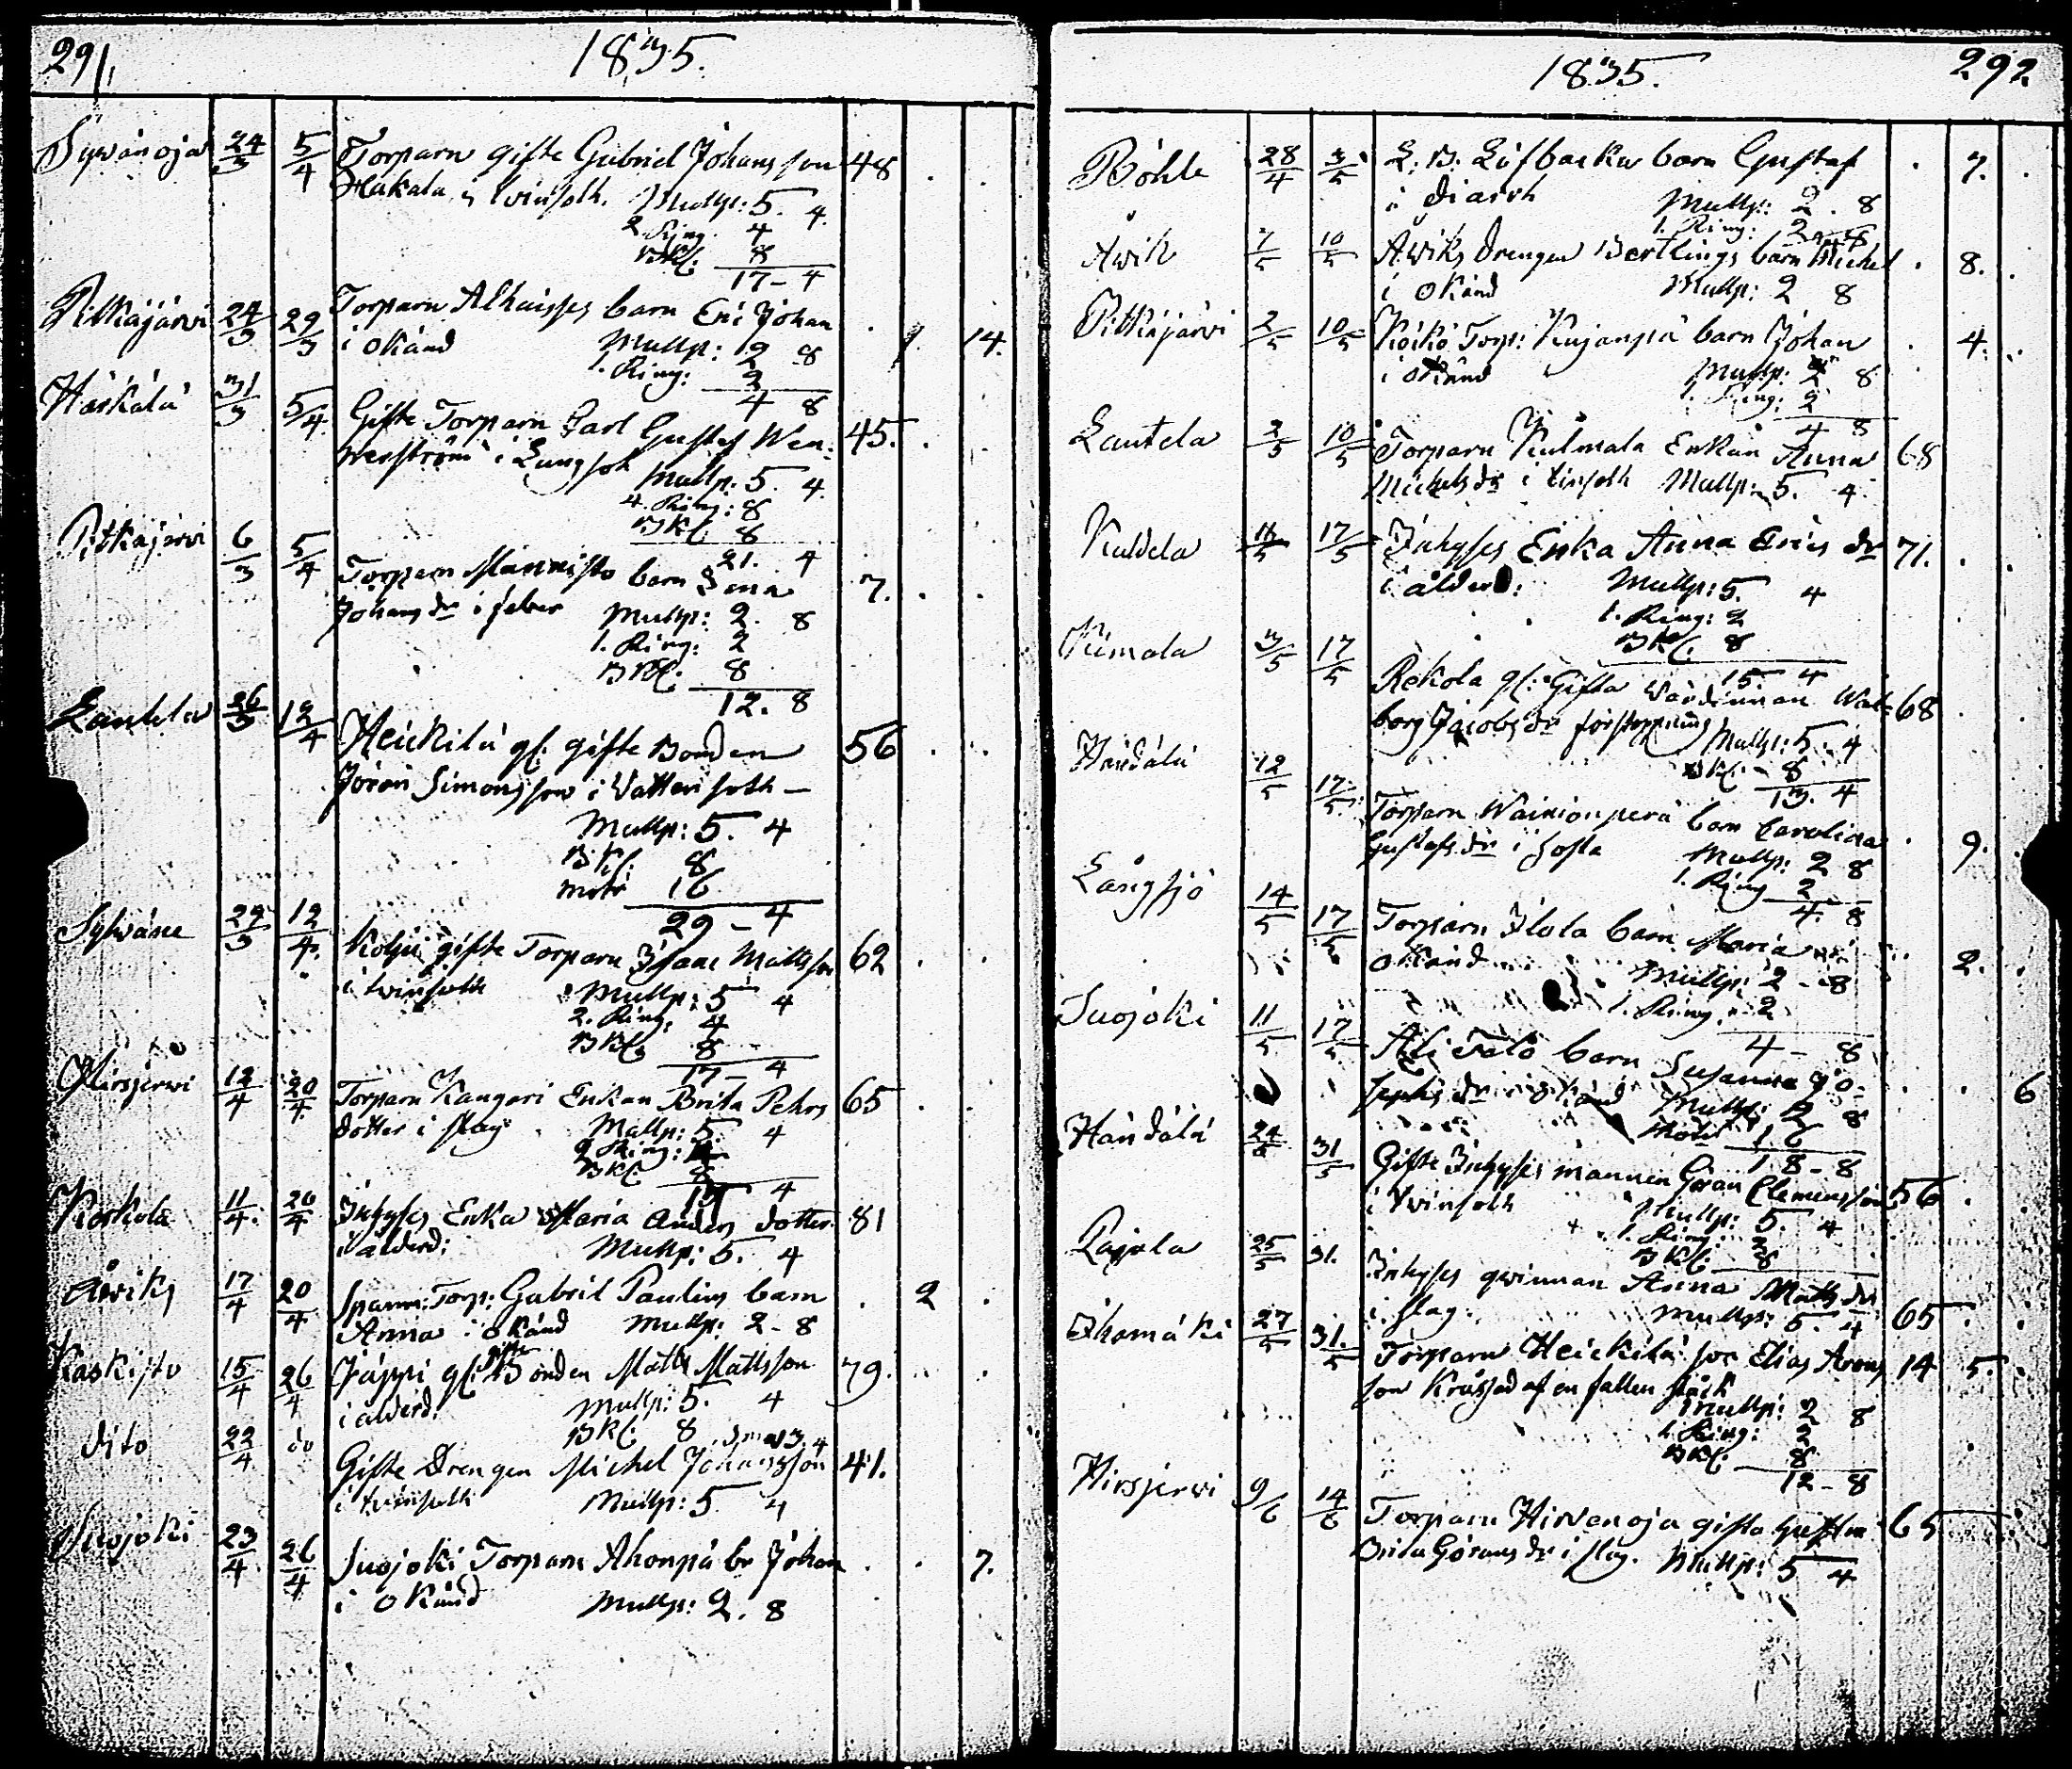 291,
1835.
Sywänoja 24/3 5/4 Torparn gifte Gabriel Johansson 48
Hakala i lvinsoth. Mullp: 5. 4.
2. Ring 4
BKl: 8
17 - 4
Pitkäjärvi 24/3 29/3 Torparn Alhaisses barn Eric Johan 1. 14.
i okänd Mullp: 2 8
1. Ring: 2
4 8
Härkälä 31/3 5/4 Gifte Torparn Carl Gustaf Wen= 45.
nerström i Lungsot Mullp: 5. 4.
4. Ring: 8
BKl. 8
21. 4
Pitkäjervi 6/3 5/4 Torparn Mannisto barn Lena 7.
Johans dr i feber Mullp: 2. 8
1. Ring: 2
BKl: 8
12. 8
Lautela 26/3 12/4 Heickilä gl. gifte Bonden 56
Jöran Simonsson i Vatten soth —
Mullp: 5. 4
BKl: 8
16
29 - 4
Sylväne 29/3 12/4. gifte Torparn Isaac Mattsson 62
i lvinsoth Mullp: 5 4
2. Ring. 4
BKl. 8
17 - 4
Hirsjerwi 12/4 20/4 Torparn Kangari Enkan Brita Pehrs 65
dotter i slag Mullp: 5. 4
2 Ring: 4
BKl. 8
17 4
Koskola 11/4. 20/4 Inhyses Enka Maria Anders dotter 81
i ålderd: Mullp: 5. 4
Åwiks 17/4 20/4 Spanm: Torp: Gabriel Paulins barn 2
Anna i okänd Mullp: 2 - 8
Kaskisto 15/4 26/4 Jäppi gl: gifte Bonden Matts Mattsson 79.
i ålderd. Mullp: 5. 4
BKl. 8 13. 4
dito 22/4 do Gifte Drengen Michel Johansson 41.
i lvinsoth Mullp: 5. 4
Suojoki 23/4 26/4 Suojoki Torparn Ahonpä br Johan 7.
i okänd Mullp: 2. 8
1835. 292
Röhle 28/4 3/5 L: B: Löfbacka barn Gustaf 7.
i diarrh Mullp: 2. 8
1. Ring: 2
4 8
Åwik 7/5 10/5 Åwiks drengen Bertlings barn Michel 8.
i okänd Mullp: 2 8
Pitkäjärvi 2/5 10/5 Kockö Torp: Kujanpä barn Johan 4.
i okänd Mullp: 2 8
1. Ring: 2
4 8
Lautela 3/5 10/5 Torparn Kulmala Enkan Anna 68
Michels dr i lvinsoth Mullp: 5. 4.
Kuldela 11/5 17/5 Inhyses Enka Anna Erics dr 71.
i ålderd: Mullp: 5. 4
1. Ring: 2
BKl. 8
15 4
Kimala 3/5 17/5 Rekola gl: Gifta Värdinnan Wal= 68
borg Jacobs dr förstoppning Mullp: 5. 4
BKl. - 8
13. 4
Händälä 12/5 17/5. Torparn Wainionperä barn Carolina 9.
Gustafs dr i hosta Mullp: 2 8
1. Ring 2
4. 8
Långsjö 14/5 17/5 Torparn Ilola barn Maria i 2.
okänd Mullp: 2 - 8
1. Ring. 2
4 - 8
Suojoki 11/5 17/5 Ali Talo barn Susanna Jo= 6
sephs dr i okänd Mullp: 2 8
16
18 - 8
Händälä 24/5 31/5 Gifte Inhyses mannen Göran Clemensson 56
i lvinsoth Mullp: 5. 4
1. Ring: 2
BKl. 8
Rajala 25/5 31. Inhyses qwinnan Anna Matts dr 65
i slag. Mullp: 5. 4
Ihamäki 27/5 31./5 Torparn Heickilä son Elias Arons 14 5.
son Krossad af en fallen stock
Mullp: 2 8
1. Ring: 2
BKl. 8
12 - 8
Hirsjerwi 9/6 14/6 Torparn Hirvenoja gifta hustru 65
Brita Görans dr i slag. Mullp: 5 4